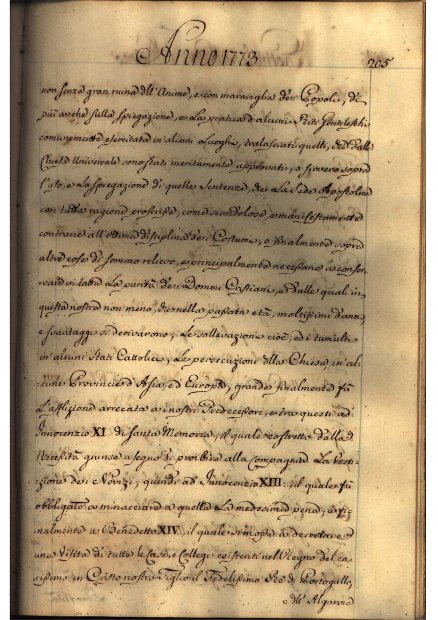 Anno 1773
205
non senza gran ruina dell'Anime, e con maraviglia dei Popoli, di
più anche sulla spiegazione, e La pratica d'alcuni Riti Gentileschi
comunemente esercitata in alcuni Luoghi, tralasciati quelli, che dalla
Chiesa Universale sono stati meritamente approvati, o sivero sopra
l'uso, e La spiegazione di quelle Sentenze, che La Sede Apostolica
con tutta ragione proscrisse, come scandolose, e manifestamente
contrarie all'ottima disciplina dei Costumi, e finalmente sopra
altre cose di sommo rilievo, e principalmente necessarie a conser-
vare intatta La purità dei Dommi Cristiani, e dalle quali in
questa nostra non meno, che nella passata età, moltissimi danni
e svantaggi si derivarono; Le sollevazioni cioè, ed i tumulti
in alcuni Stati Cattolici, Le persecuzioni della Chiesa in al-
cune Provincie d'Asia, ed Europa, grande finalmente fù
L'afflizione arrecata a i nostri Predecessori, e tra questi ad
Innocenzio XI. di Santa Memoria, il quale costretto dalla
Necessità giunse a segno di proibire alla Compagnia La Vesti-
zione dei Novizi, quindi ad Innocenzio XIII., il quale fù
obbligato a minacciare a quella La medesima pena, e fi-
nalmente a Benedetto XIV., il quale stimò a decretare
una Visita di tutte le Case, e Collegi esistenti nel Regno del ca-
rissimo in Cristo nostro Figlio il Fedelissimo Re di Portogallo,